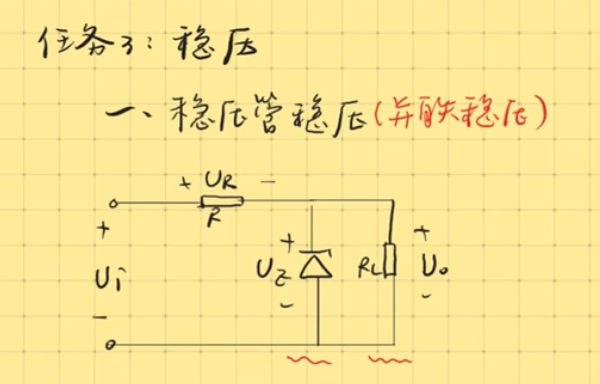 任务3：稳压
一、稳压管稳压(并联稳压)
+ UR -
R
+ Ui -
+ UZ -
RL
+ Uo -